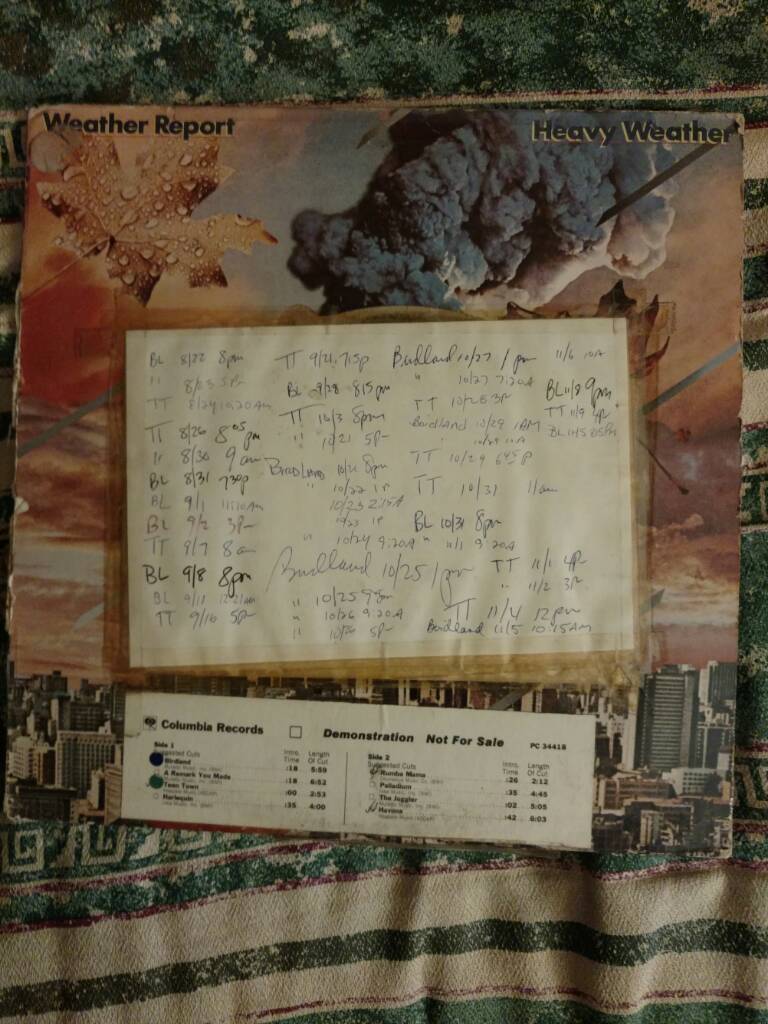 Weather Report
Heavy Weather
BL 8/22 8pm
" 8/23 5P
TT 8/24 10:20AM
TT 8/26 8:05 pm
" 8/30 9 am
BL 8/31 730p
BL 9/1 11:10AM
BL 9/2 3P
TT 9/7 8 am
BL 9/8 8pm
BL 9/11 12:21AM
TT 9/16 5P
TT 9/21 7:15p
BL 9/28 815pm
TT 10/3 8pm
" 10/21 5P
Birdland 10/21 8pm
" 10/22 1P
10/23 2:15A
10/23 1P
" 10/24 9:20A
Birdland 10/25 1pm
" 10/25
" 10/26 9:20A
" 10/26 5P
Birdland 10/27 1pm
" 10/27 7:20A
TT 10/28 3P
Birdland 10/29 1AM
10/29 10A
TT 10/29 645P
TT 10/31 11am
BL 10/31 8pm
" 11/1 9:20A
TT 11/1 4P
" 11/2 3P
TT 11/4 12pm
Birdland 11/5 10:15AM
11/6 10A
BL 11/8 9pm
TT 11/9 4P
BL 11/15
Columbia Records
Demonstration Not For Sale
PC 34418
Side 1
Suggested Cuts Intro. Time Length Of Cut
Birdland :18 5:59
A Remark You Made :18 6:52
Teen Town :00 2:53
Harlequin :35 4:00
Side 2
Suggested Cuts Intro. Time Length Of Cut
Rumba Mama :26 2:12
Palladium :35 4:45
The Juggler :02 5:05
Havona :42 6:03